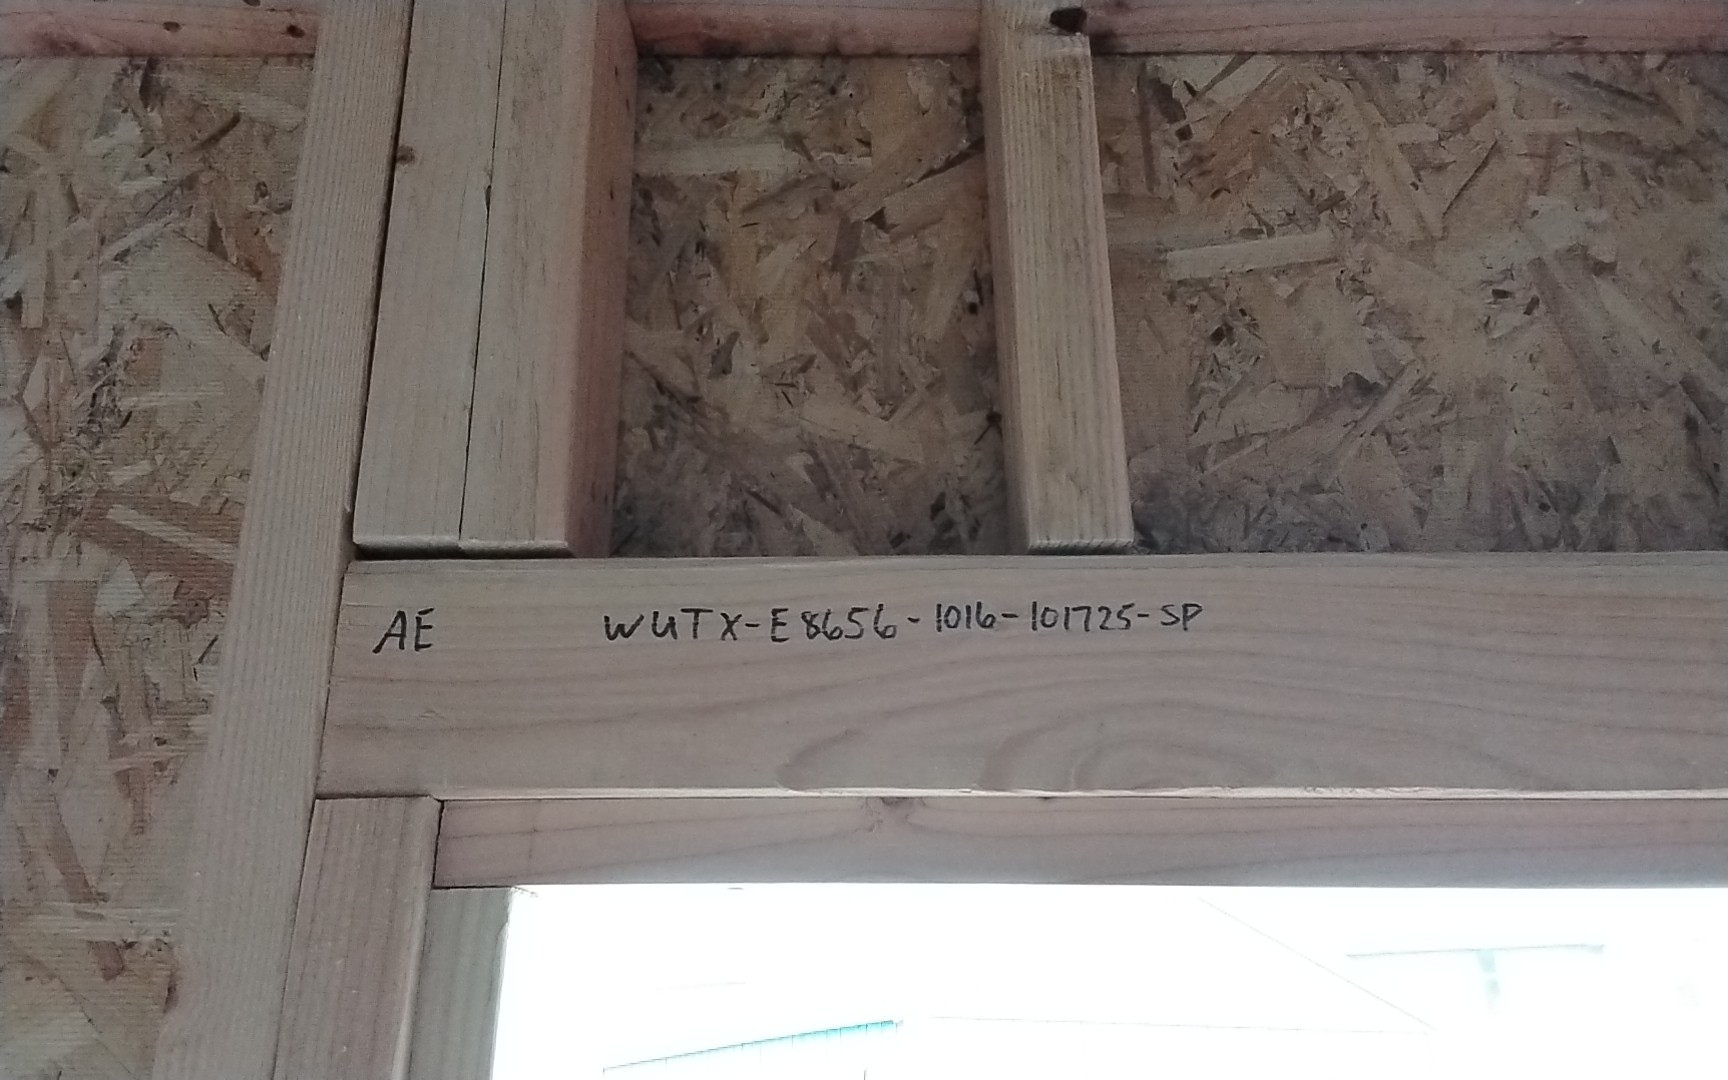 AE WUTX-E8656-1016-101725-SP